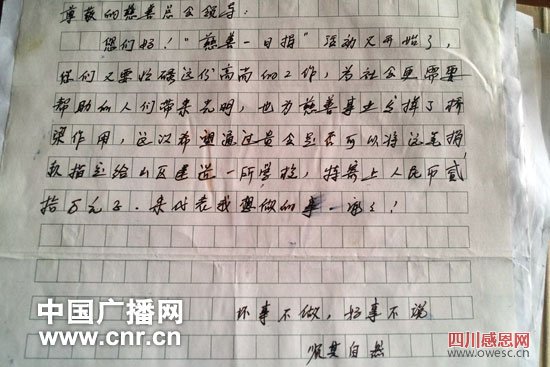 尊敬的慈善总会领导：
您们好！"慈善一日捐"活动又开始了，
你们又要忙碌这份高尚的工作，为社会更需要
帮助的人们带来光明，也为慈善事业发挥了桥
梁作用，这次希望通过贵会是否可以将这笔捐
款指定给山区建造一所学校，特寄上人民币贰
拾万元正．来代表我想做的事．谢谢！
坏事不做，好事不说
顺其自然
中国广播网
www.cnr.cn
四川感恩网
www.owesc.cn